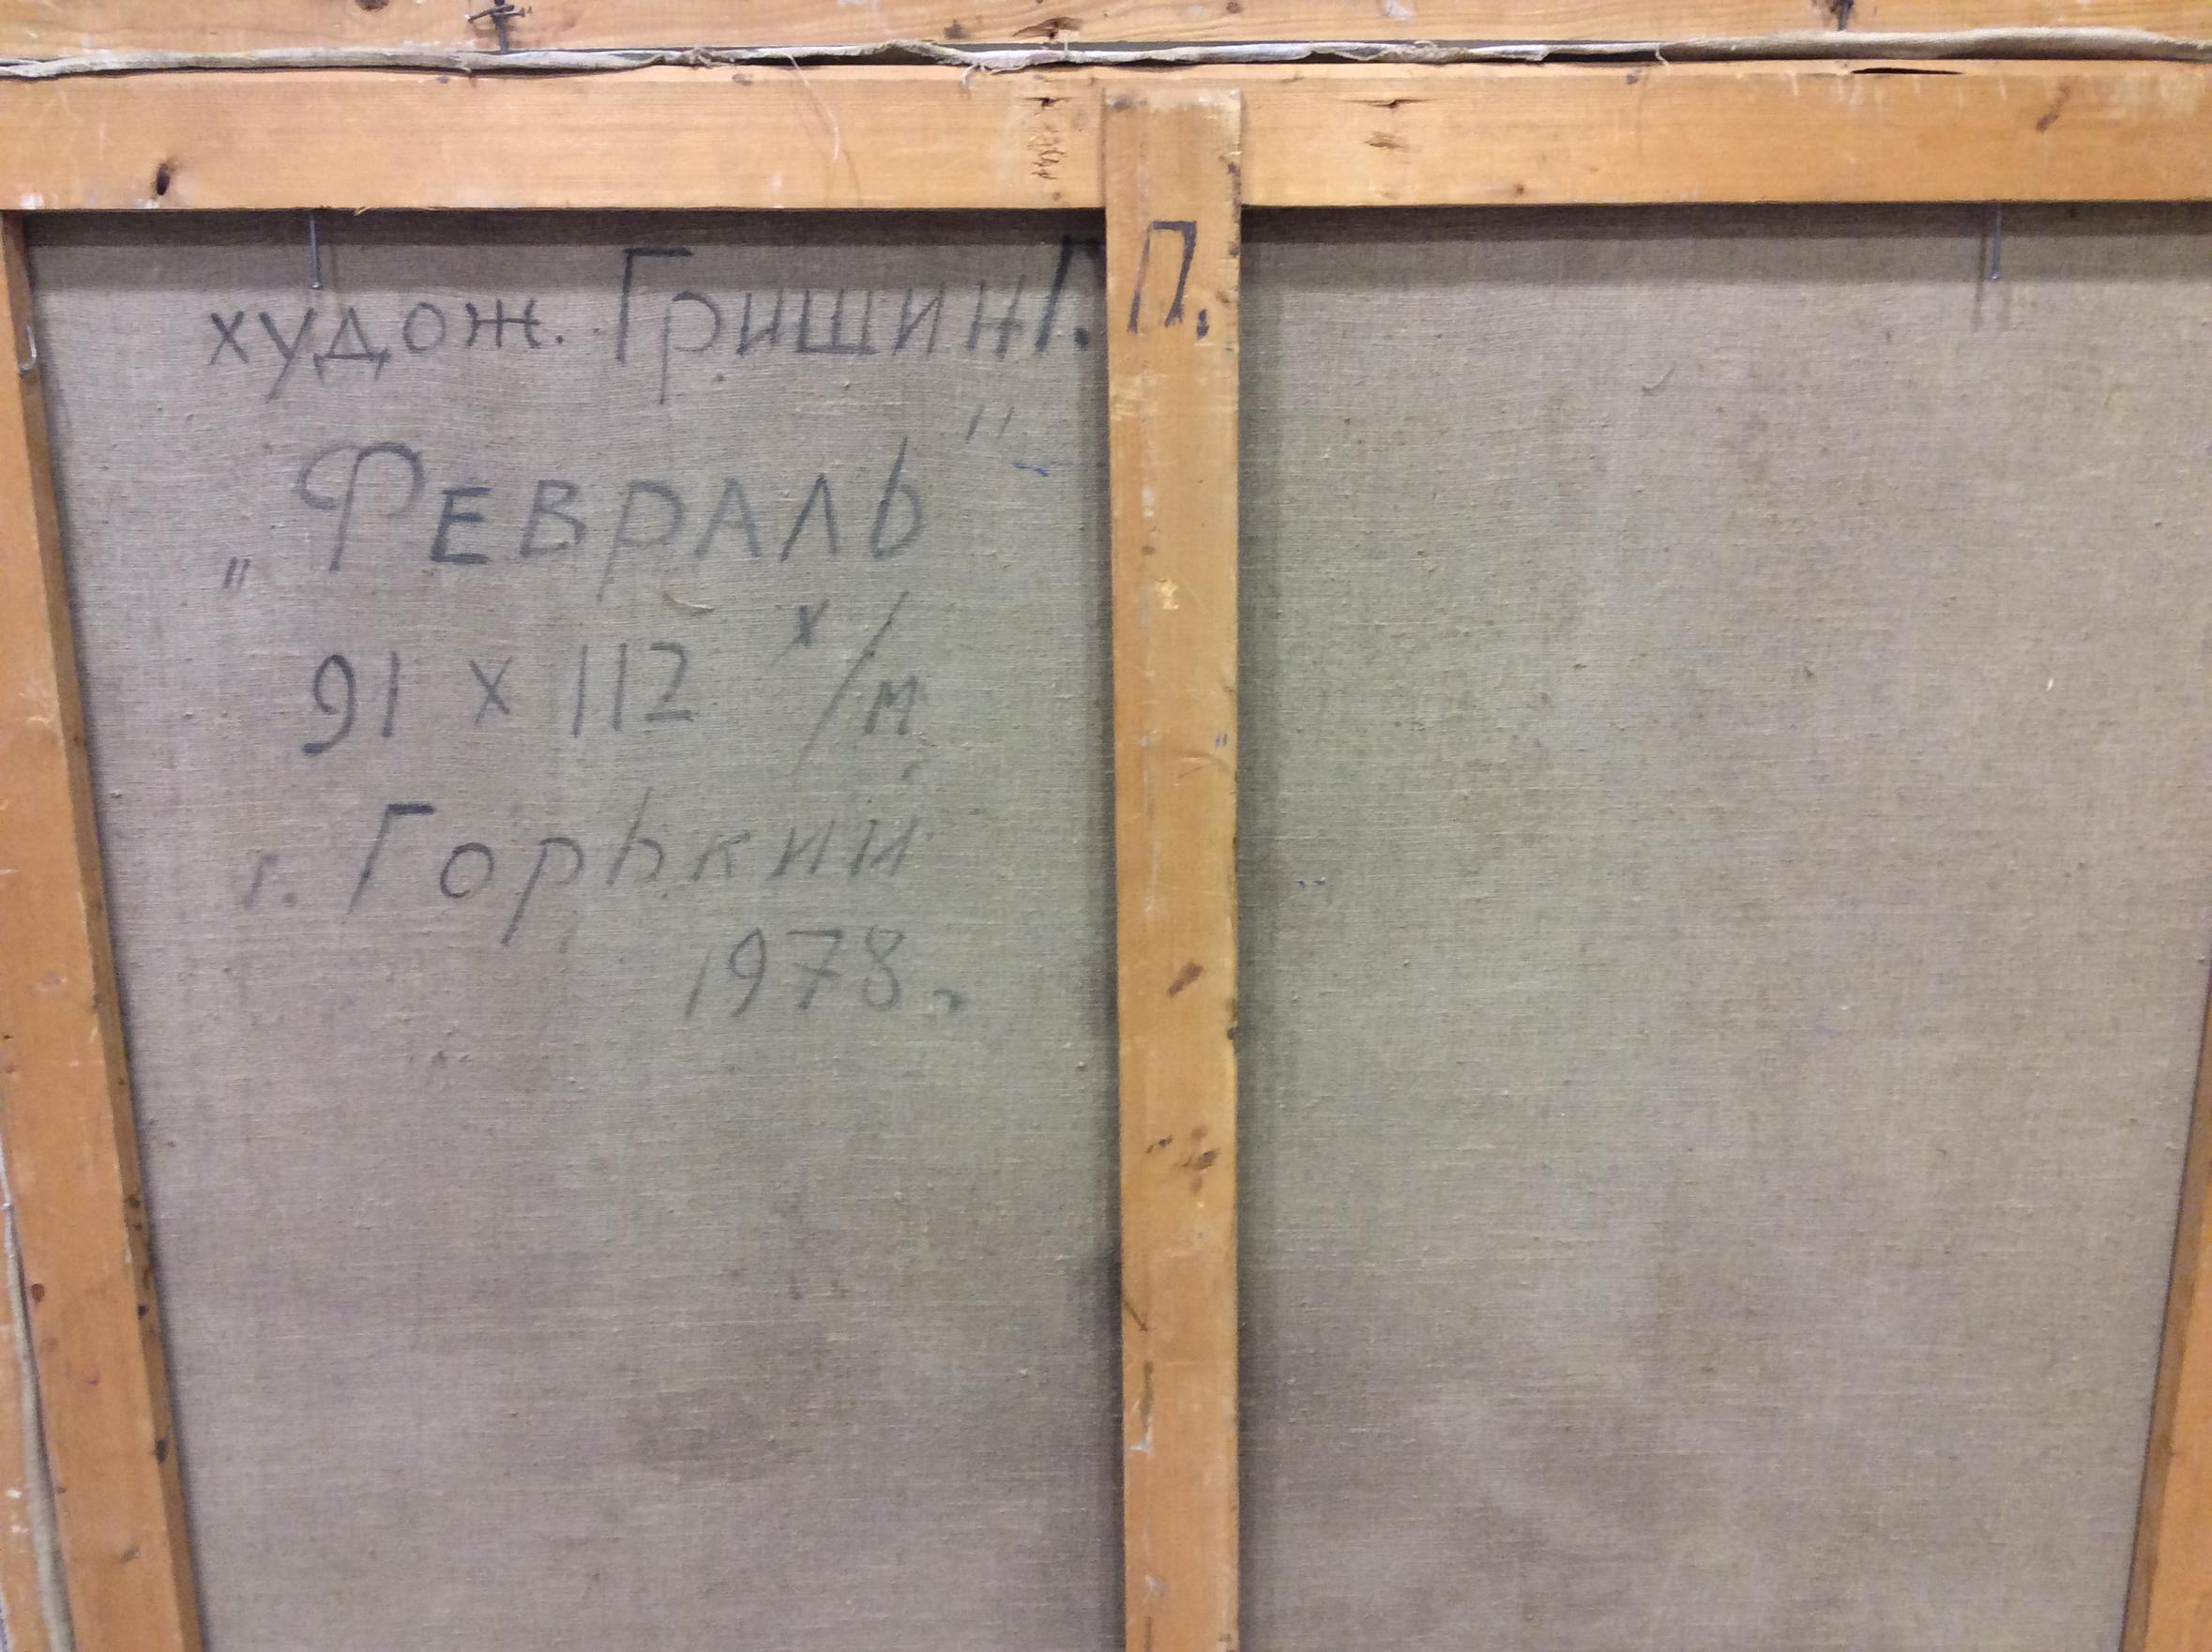 худож. Гришин Г. П.
„Февраль"
91 х 112 х/м
г. Горький
1978г